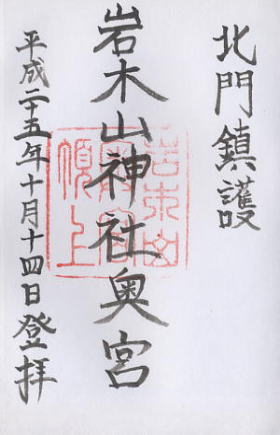 北門鎮護
岩木山神社奥宮
平成二十五年十月十四日登拝
岩木山
奥宮
頂上